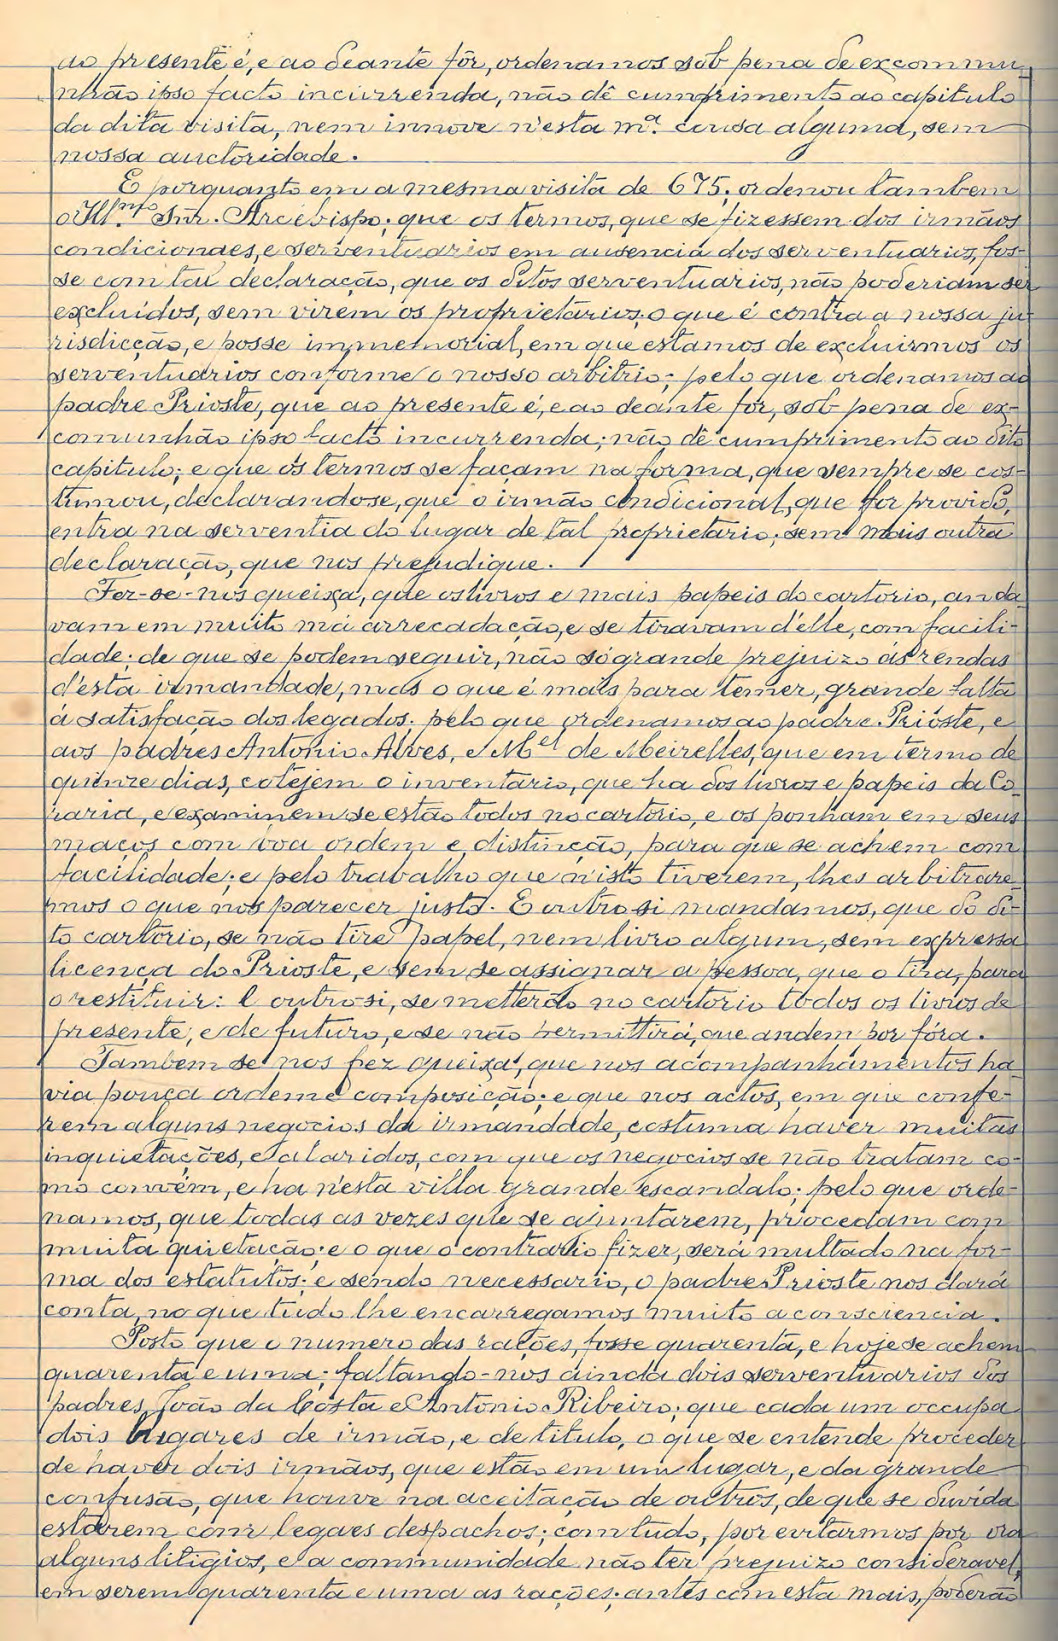 ao presente é, e ao deante fôr, ordenamos sob pena de excommu-
nhão ipso facto incurrenda, não dê cumprimento ao capitulo
da dita visita, nem innove n'esta mª. cousa alguma, sem
nossa auctoridade.
E porquanto em a mesma visita de 675; ordenou tambem
o Illmo Snr. Arcebispo; que os termos, que se fizessem dos irmãos
condicionaes, e serventuarios em ausencia dos serventuarios, fos-
se com tal declaração, que os ditos serventuarios, não poderiam ser
excluidos, sem virem os proprietários; o que é contra a nossa ju-
risdicção, e posse immemorial, em que estamos de excluirmos os
serventuarios conforme o nosso arbitrio; pelo que ordenamos ao
padre Prioste, que ao presente é, e ao deante fôr, sob pena de ex-
comunhão ipso facto incurrenda; não dê cumprimento ao dito
capitulo; e que os termos se façam na forma, que sempre se cos-
tumou, declarandose, que o irmão condicional, que for provido,
entra na serventia do lugar de tal proprietario; sem mais outra
declaração, que nos prejudique.
Fez-se-nos queixa, que os livros e mais papeis do cartorio, anda-
vam em muito má arrecadação, e se tiravam d'elle, com facili-
dade; de que se podem seguir, não só grande prejuizo ás rendas
d'esta irmandade, mas o que é mais para temer, grande falta
á satisfação dos legados. pelo que ordenamos ao padre Prióste, e
aos padres Antonio Alves, e Mel de Meirelles, que em termo de
quinze dias, cotejem o inventario, que ha dos livros e papeis da Co-
raria, e examinem se estão todos no cartorio, e os ponham em seus
maços com boa ordem e distincção, para que se achem com
facilidade; e pelo trabalho que n'isto tiverem, lhes arbitrare-
mos o que nos parecer justo. E outro si mandamos, que do di-
to cartorio, se não tire papel, nem livro algum, sem expressa
licença do Prioste, e sem se assignar a pessoa, que o tira, para
o restituir: E outro-si, se metterão no cartorio todos os livros de
presente, e de futuro, e se não permittirá, que andem por fóra.
Tambem se nos fez queixa, que nos acompanhamentos ha-
via pouca ordem e composição; e que nos actos, em que confe-
rem alguns negocios da irmandade, costuma haver muitas
inquietações, e alaridos, com que os negocios se não tratam co-
mo convém, e ha n'esta villa grande escandalo; pelo que orde-
namos, que todas as vezes que se ajuntarem, procedam com
muita quietação; e o que o contrario fizer, será multado na for-
ma dos estatutos; e sendo necessario, o padre Prioste nos dará
conta, no que tudo lhe encarregamos muito a consciencia.
Posto que o numero das rações, fosse quarenta, e hoje se achem
quarenta e uma; faltando-nos ainda dois serventuarios dos
padres João da Costa e Antonio Ribeiro; que cada um occupa
dois lugares de irmão, e de titulo, o que se entende proceder
de haver dois irmãos, que estão em um lugar, e da grande
confusão, que houve na aceitação de outros, de que se duvida
estarem com legaes despachos; comtudo, por evitarmos por ora
alguns litigios, e a communidade não ter prejuizo consideravel,
em serem quarenta e uma as rações; antes com esta mais, poderão